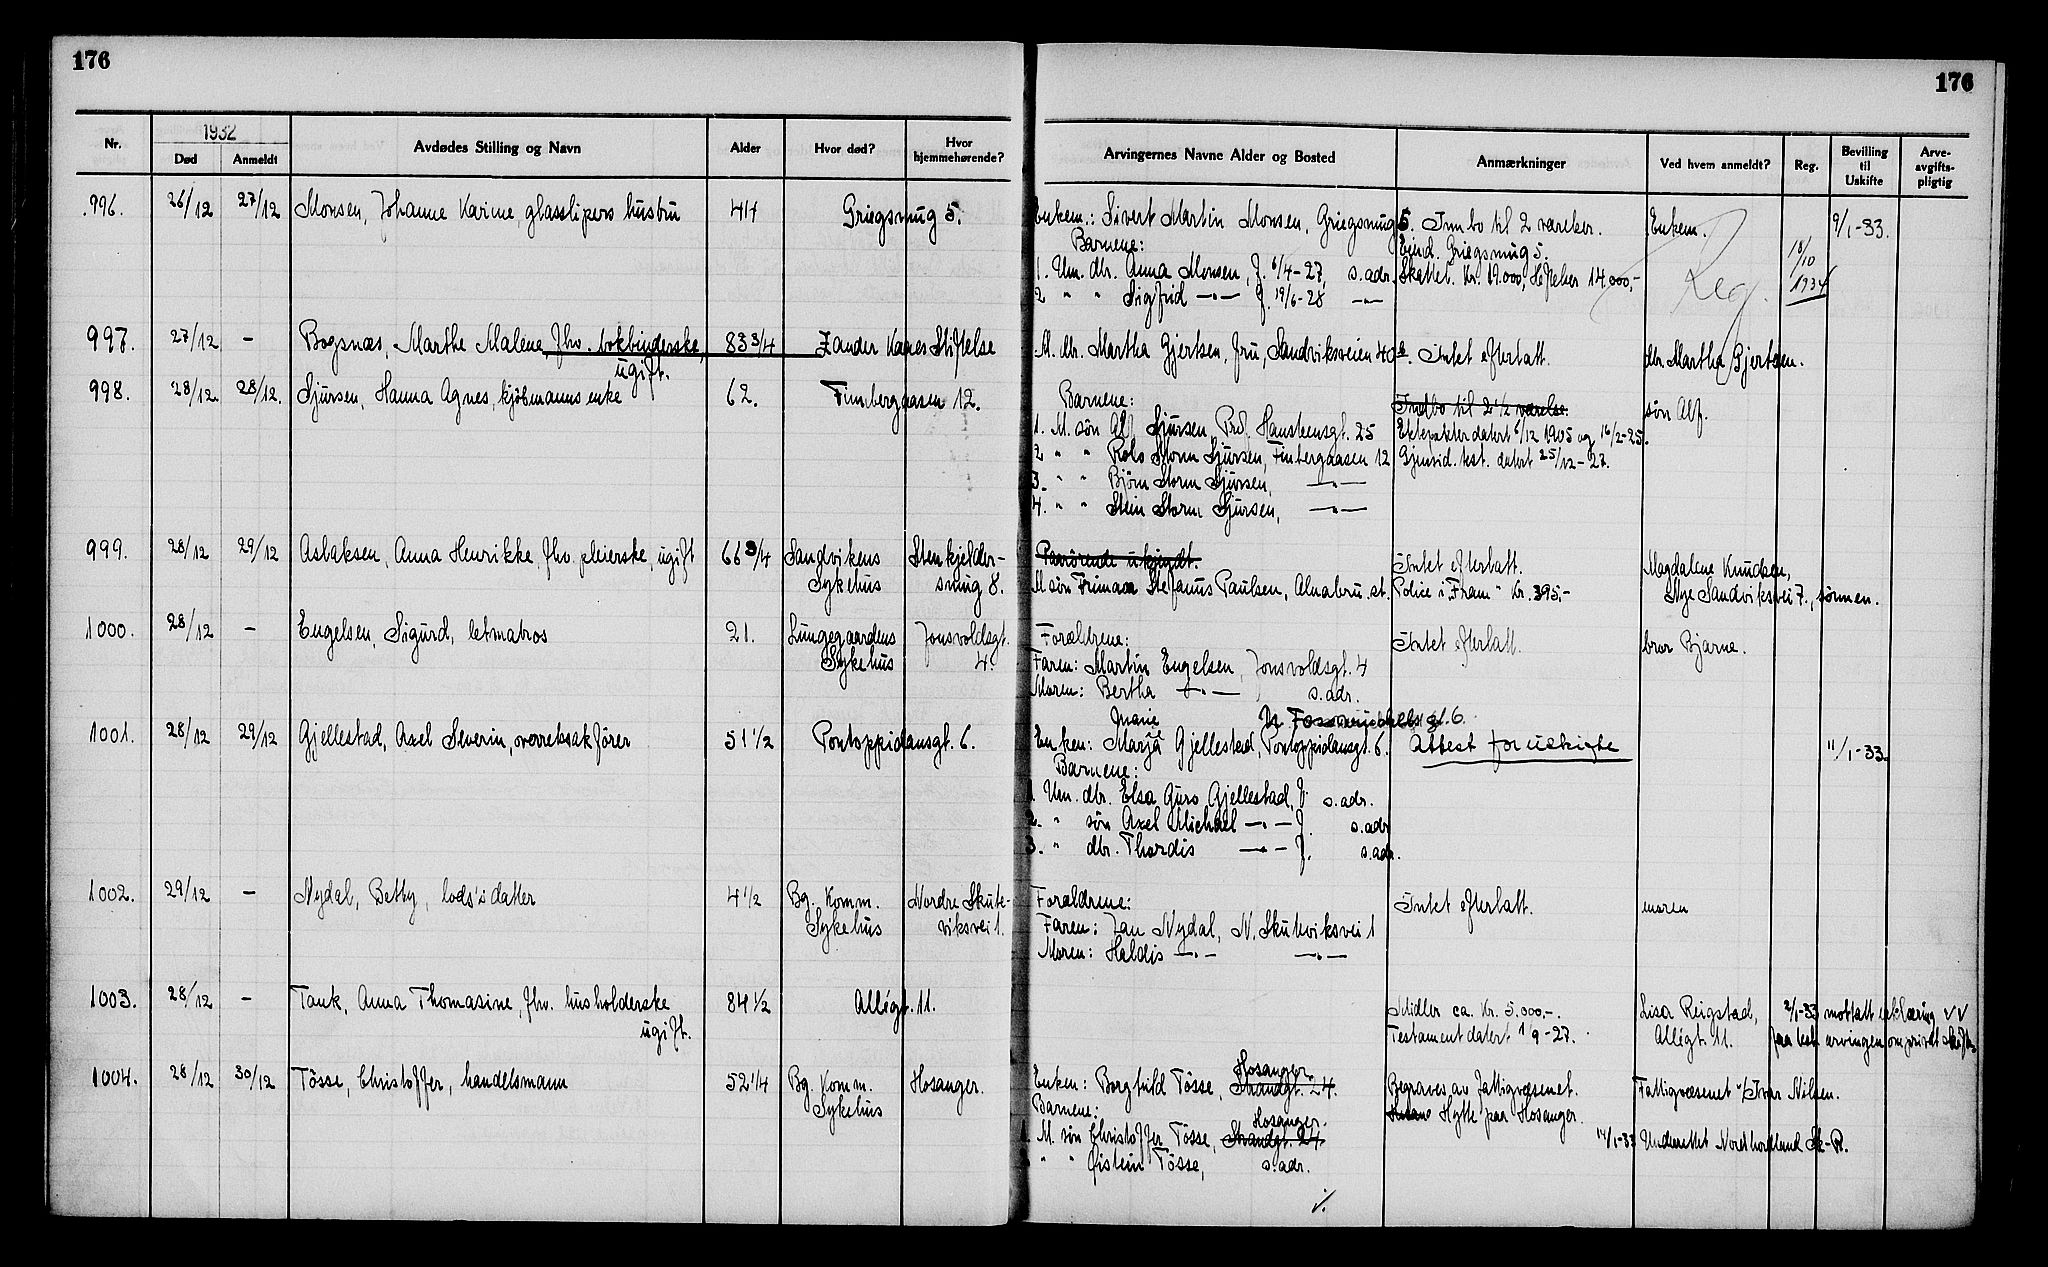 176
176
Nr.
1932
Død
Anmeldt
Avdødes Stilling og Navn
Alder
Hvor død?
Hvor hjemmehørende?
Arvingernes Navne Alder og Bosted
Anmærkninger
Ved hvem anmeldt?
Reg.
Bevilling til Uskifte
Arve-avgifts-pligtig
996. 26/12 27/12 Monsen, Johanne Karine, glasslipers hustru 44 Griegsmug 5. Enkem.: Sivert Martin Monsen, Griegsmug 5. Innbo til 2 værelser. Enkem. 9/1-33.
Barnene: Eiend. Griegsmug 5. 18/10
1. Um. dtr. Anna Monsen, f. 6/4-27, s. adr. Skattet. Kr. 19.000, Heftelser 14.000,- Reg. 1934
2 " " Sigfrid —"— f. 19/6-28 —"—
997. 27/12 - Bogsnæs, Marthe Malene fhv. bokbinderske, 83 3/4 Zander Kaaes Stiftelse M. dtr. Martha Gjertsen, fru, Sandviksveien 40a. Intet efterlatt. dtr. Martha Gjertsen.
ugift.
998. 28/12 28/12. Sjursen, Hanna Agnes, kjøbmanns enke 62. Finbergaasen 12. Barnene: Indbo til 2 1/2 værelse. søn Alf.
1. M. søn Alf Sjursen, Prof. Hansteensgt. 25 Ektepakter datert 6/12 1905 og 16/2-25.
2 " " Rolv Storm Sjursen, Finbergaasen 12 Gjensid. test. datert 25/12-27.
3. " " Bjørn Storm Sjursen, —"—
4. " " Stein Storm Sjursen, —"—
999. 28/12 29/12 Aslaksen, Anna Henrikke, fhv. pleierske, ugift 66 3/4 Sandvikens Stenkjelder- Paarørende ukjendt. Intet efterlatt. Magdalene Knudsen,
Sykehus smug 8. M søn Frimann Stefanus Paulsen, Alnabru st. Police i "Fram" Kr. 395,- Nye Sandviksvei 7., sønnen.
1000. 28/12 - Engelsen, Sigurd, letmatros 21. Lungegaardens Jonsvoldsgt. Forældrene: Intet efterlatt. bror Bjarne.
Sykehus 4. Faren: Martin Engelsen, Jonsvoldsgt. 4
Moren: Bertha —"— s. adr.
Marie
1001. 28/12 29/12 Gjellestad, Axel Severin, overretssakfører 51 1/2 Pontoppidansgt. 6. Enken: Marja Gjellestad, Pontoppidansgt. 6. Attest for uskifte 11/1-33.
Barnene:
1. Um. dtr. Elsa Guro Gjellestad, f. s. adr.
2. " søn Axel Michael —"— f. s. adr
3. " dtr. Thordis —"— f. s. adr.
1002. 29/12 - Nydal, Betty, lods's datter 4 1/2 Bg. Komm. Nordre Skute- Forældrene: Intet efterlatt. moren
Sykehus viksvei 1. Faren: Jan Nydal, N. Skuteviksvei 1
Moren: Haldis —"— —"—
1003. 28/12 - Tank, Anna Thomasine, fhv. husholderske 84 1/2 Allégt. 11. Midler ca. Kr. 5.000,-. Lisa Reigstad, 2/1-33 mottatt erklæring
ugift. Testament datert 1/9-27. Allégt. 11. fra test. arvingen om privat skifte
1004. 28/12 30/12 Tösse, Christoffer, handelsmann 52 1/4 Bg. Komm. Hosanger. Enken: Borghild Tösse, Strandgt. 24. Hosanger. Begraves av Fattigvæsenet. Fattigvæsenet v/ Ivar Nilsen.
Sykehus Barnene: Hytte paa Hosanger.
1. M. søn Christoffer Tösse, Strandgt. 24 Hosanger. 14/1-33 Underrettet Nordhordland Sk-R.
" " Øistein Tösse, s. adr.